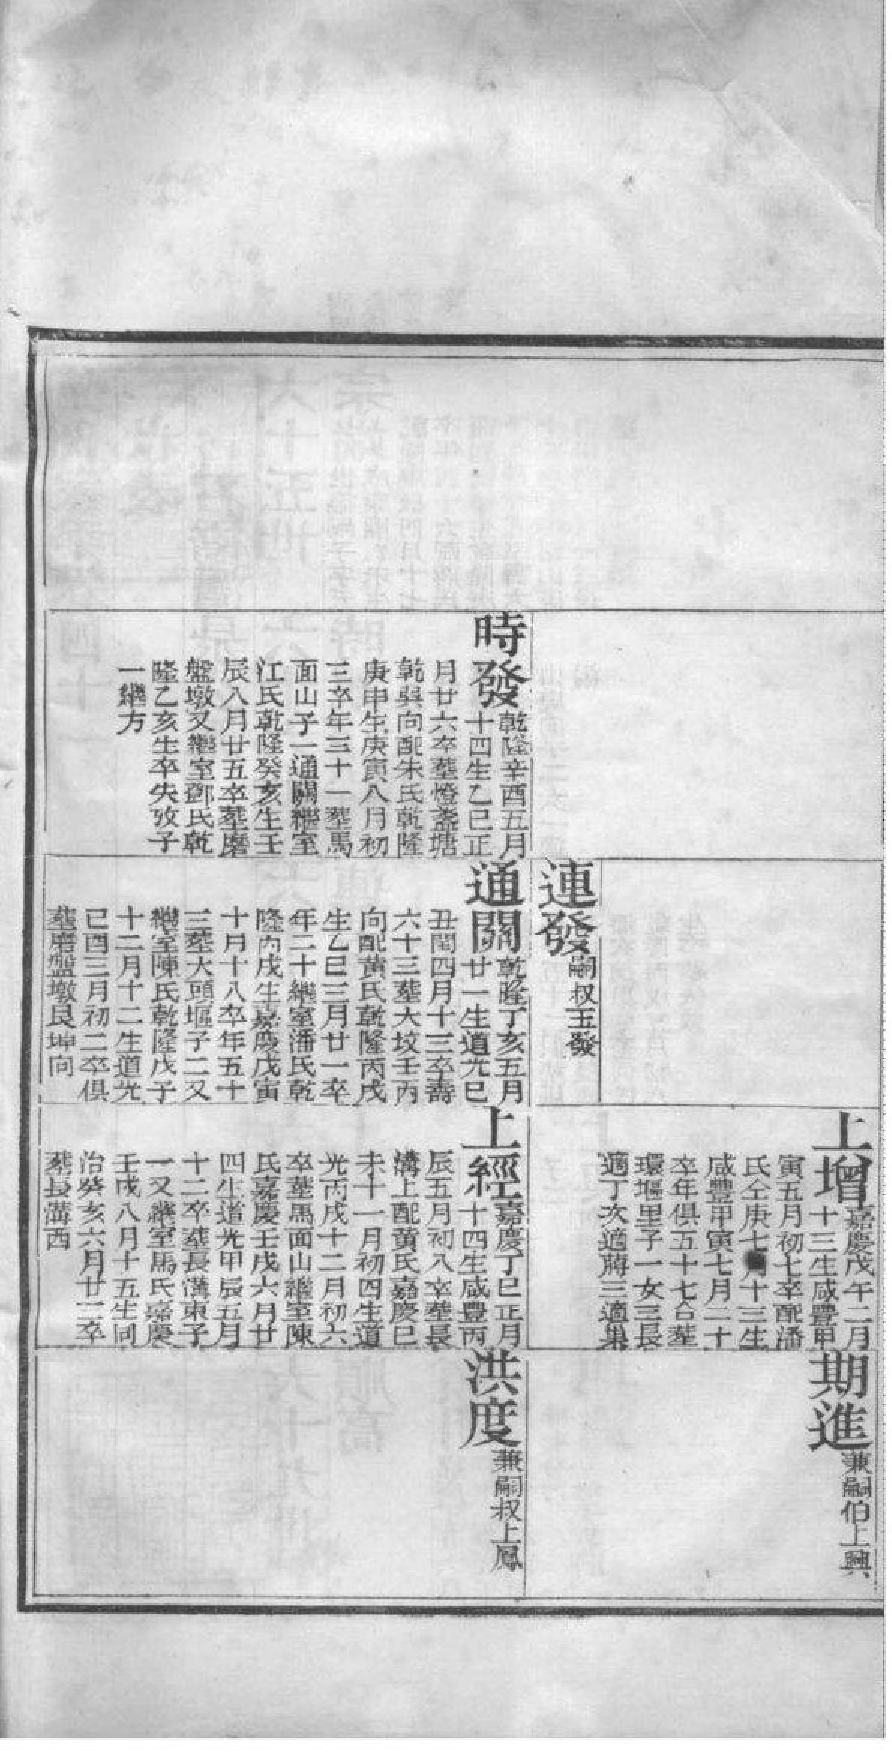 時發
乾隆辛酉五月
十四生乙巳正
月廿六卒葬燈盞塘
乾巽向配朱氏乾隆
庚申生庚寅八月初
三卒年三十一葬馬
面山子一通關繼室
江氏乾隆癸亥生壬
辰八月廿五卒葬磨
盤墩又繼室鄧氏乾
隆乙亥生卒失攷子
一繼方
連發
嗣叔玉發
通關
乾隆丁亥五月
廿一生道光己
丑閏四月十三卒壽
六十三葬大坟壬丙
向配黄氏乾隆丙戌
生乙巳三月廿一卒
年二十繼室潘氏乾
隆丙戌生嘉慶戊寅
十月十八卒年五十
三葬大頭堰子二又
繼室陳氏乾隆戊子
十二月十二生道光
己酉三月初二卒俱
葬磨盤墩艮坤向
上增
嘉慶戊午二月
十三生咸豐甲
寅五月初七卒配潘
氏仝庚七月十三生
咸豐甲寅七月二十
卒年俱五十七合葬
環堰里子一女三長
適丁次適蔣三適巢
上經
嘉慶丁巳正月
十四生咸豐丙
辰五月初八卒葬長
溝上配黄氏嘉慶己
未十一月初四生道
光丙戌十二月初六
卒葬馬面山繼室陳
氏嘉慶壬戌六月廿
四生道光甲辰五月
十二卒葬長溝東子
一又繼室馬氏嘉慶
壬戌八月十五生同
治癸亥六月廿二卒
葬長溝西
期進
兼嗣伯上興
洪度
兼嗣叔上鳳